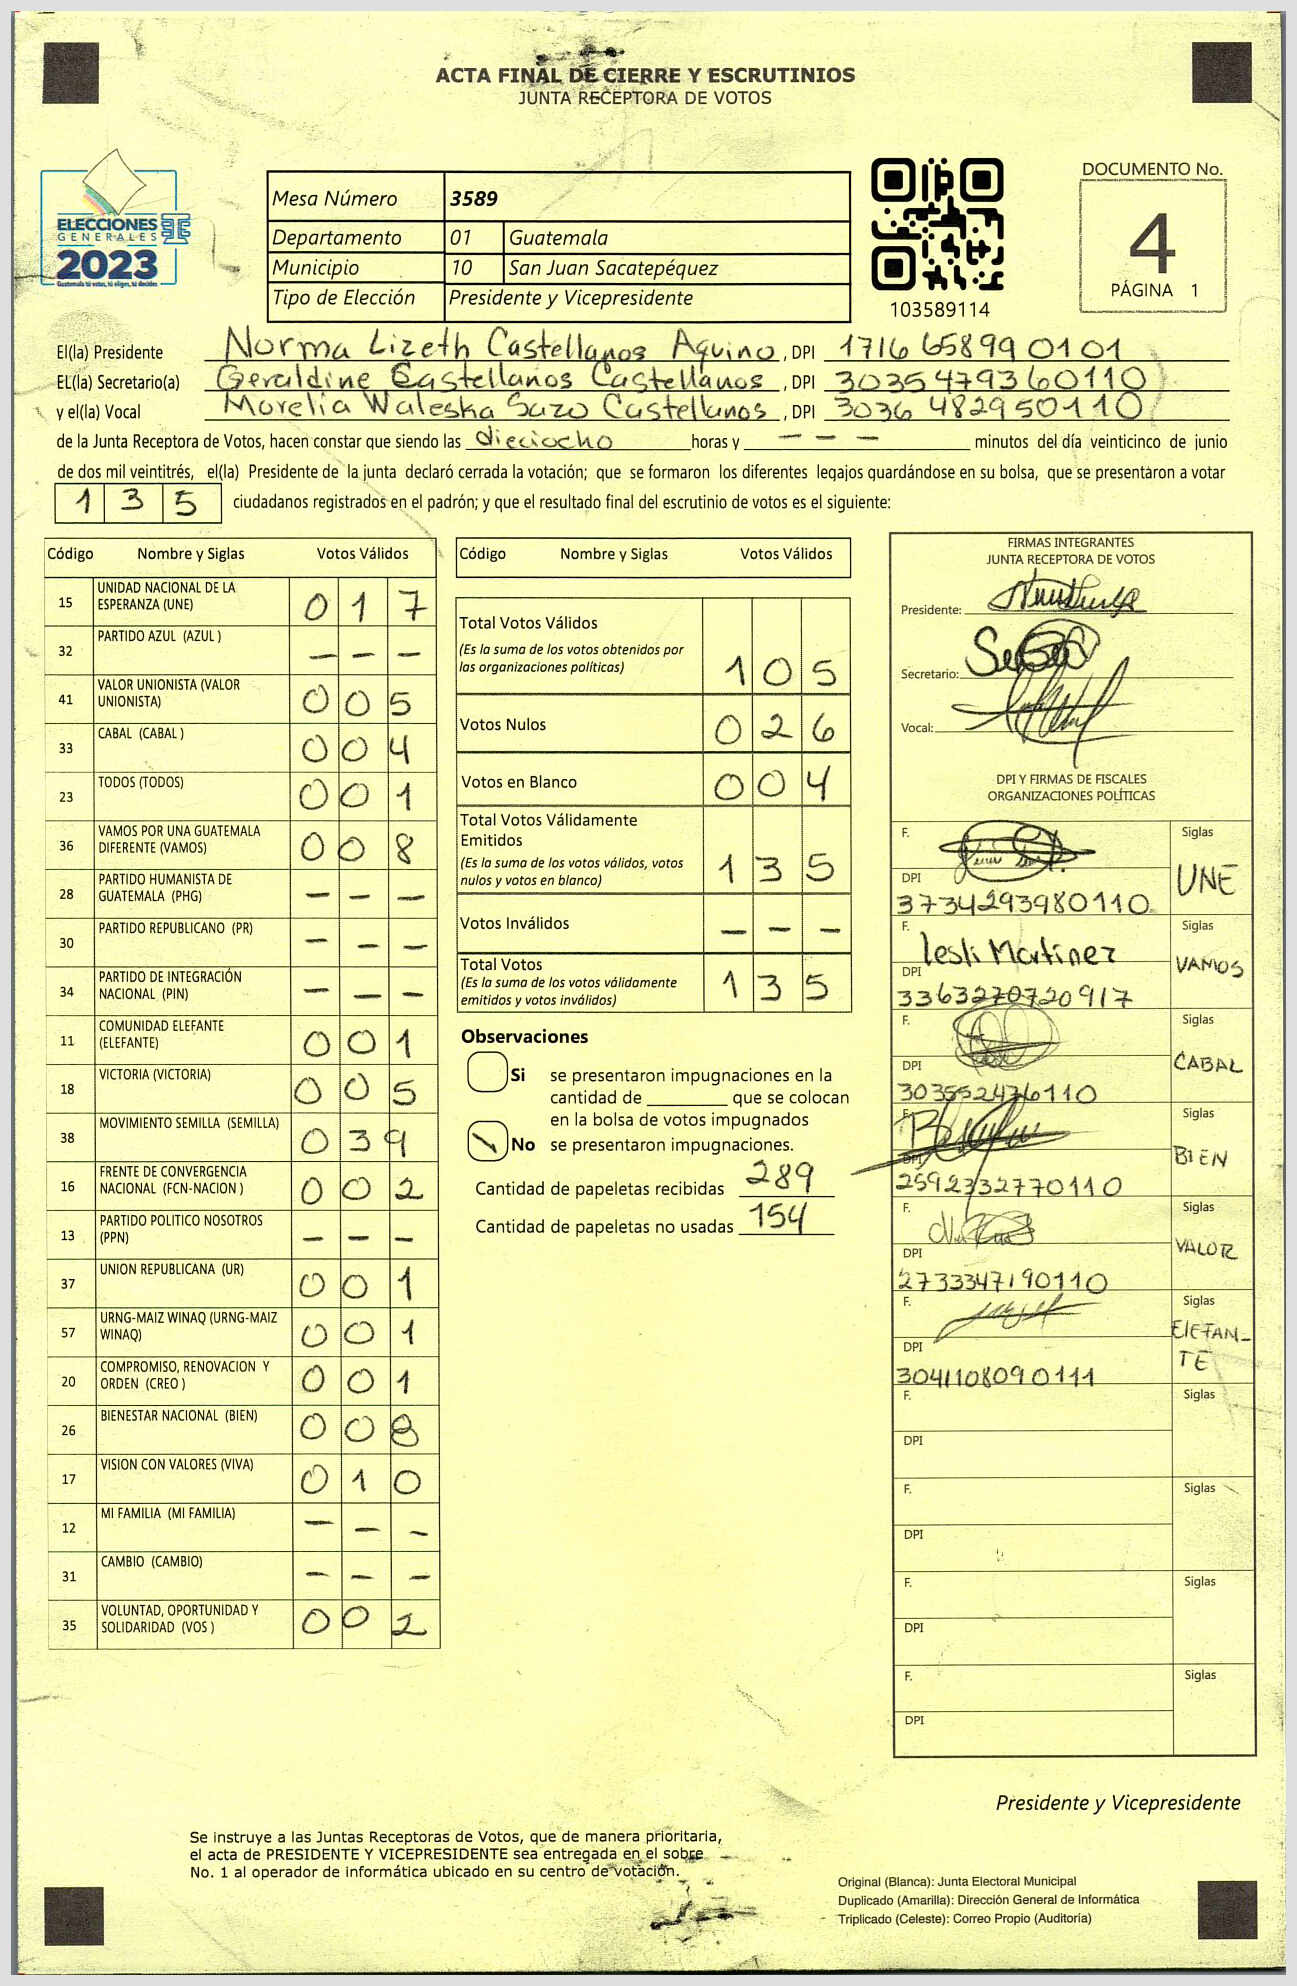 ACTA FINAL DE CIERRE Y ESCRUTINIOS
JUNTA RECEPTORA DE VOTOS
ELECCIONES
GENERALES
2023
Guatemala tú votas, tú eliges, tú decides
Mesa Número 3589
Departamento 01 Guatemala
Municipio 10 San Juan Sacatepéquez
Tipo de Elección Presidente y Vicepresidente
103589114
DOCUMENTO No.
4
PÁGINA 1
El(la) Presidente Norma Lizeth Castellanos Aquino, DPI 1716 65899 0101
EL(la) Secretario(a) Geraldine Castellanos Castellanos, DPI 3035 47936 0110
y el(la) Vocal Morelia Waleska Sazo Castellanos, DPI 3036 48295 0110
de la Junta Receptora de Votos, hacen constar que siendo las dieciocho horas y – – – minutos del día veinticinco de junio
de dos mil veintitrés, el(la) Presidente de la junta declaró cerrada la votación; que se formaron los diferentes legajos guardándose en su bolsa, que se presentaron a votar
1 3 5 ciudadanos registrados en el padrón; y que el resultado final del escrutinio de votos es el siguiente:
Código Nombre y Siglas Votos Válidos
15 UNIDAD NACIONAL DE LA ESPERANZA (UNE) 0 1 7
32 PARTIDO AZUL (AZUL ) – – –
41 VALOR UNIONISTA (VALOR UNIONISTA) 0 0 5
33 CABAL (CABAL ) 0 0 4
23 TODOS (TODOS) 0 0 1
36 VAMOS POR UNA GUATEMALA DIFERENTE (VAMOS) 0 0 8
28 PARTIDO HUMANISTA DE GUATEMALA (PHG) – – –
30 PARTIDO REPUBLICANO (PR) – – –
34 PARTIDO DE INTEGRACIÓN NACIONAL (PIN) – – –
11 COMUNIDAD ELEFANTE (ELEFANTE) 0 0 1
18 VICTORIA (VICTORIA) 0 0 5
38 MOVIMIENTO SEMILLA (SEMILLA) 0 3 9
16 FRENTE DE CONVERGENCIA NACIONAL (FCN-NACION ) 0 0 2
13 PARTIDO POLITICO NOSOTROS (PPN) – – –
37 UNION REPUBLICANA (UR) 0 0 1
57 URNG-MAIZ WINAQ (URNG-MAIZ WINAQ) 0 0 1
20 COMPROMISO, RENOVACION Y ORDEN (CREO ) 0 0 1
26 BIENESTAR NACIONAL (BIEN) 0 0 8
17 VISION CON VALORES (VIVA) 0 1 0
12 MI FAMILIA (MI FAMILIA) – – –
31 CAMBIO (CAMBIO) – – –
35 VOLUNTAD, OPORTUNIDAD Y SOLIDARIDAD (VOS ) 0 0 2
Código Nombre y Siglas Votos Válidos
Total Votos Válidos
(Es la suma de los votos obtenidos por
las organizaciones políticas) 1 0 5
Votos Nulos 0 2 6
Votos en Blanco 0 0 4
Total Votos Válidamente
Emitidos
(Es la suma de los votos válidos, votos
nulos y votos en blanco) 1 3 5
Votos Inválidos – – –
Total Votos
(Es la suma de los votos válidamente
emitidos y votos inválidos) 1 3 5
Observaciones
Si se presentaron impugnaciones en la
cantidad de ________ que se colocan
en la bolsa de votos impugnados
No se presentaron impugnaciones.
Cantidad de papeletas recibidas 289
Cantidad de papeletas no usadas 154
FIRMAS INTEGRANTES
JUNTA RECEPTORA DE VOTOS
Presidente:
Secretario:
Vocal:
DPI Y FIRMAS DE FISCALES
ORGANIZACIONES POLÍTICAS
F. Siglas
DPI UNE
3734293980110
F. Lesli Martinez Siglas
DPI VAMOS
3363270720917
F. Siglas
DPI CABAL
303552436110
F. Siglas
DPI BIEN
2592332770110
F. Siglas
DPI VALOR
2733347190110
F. Siglas
DPI ElEFAN-
TE
3041108090111
F. Siglas
DPI
F. Siglas
DPI
F. Siglas
DPI
F. Siglas
DPI
Presidente y Vicepresidente
Se instruye a las Juntas Receptoras de Votos, que de manera prioritaria,
el acta de PRESIDENTE Y VICEPRESIDENTE sea entregada en el sobre
No. 1 al operador de informática ubicado en su centro de votación.
Original (Blanca): Junta Electoral Municipal
Duplicado (Amarilla): Dirección General de Informática
Triplicado (Celeste): Correo Propio (Auditoría)